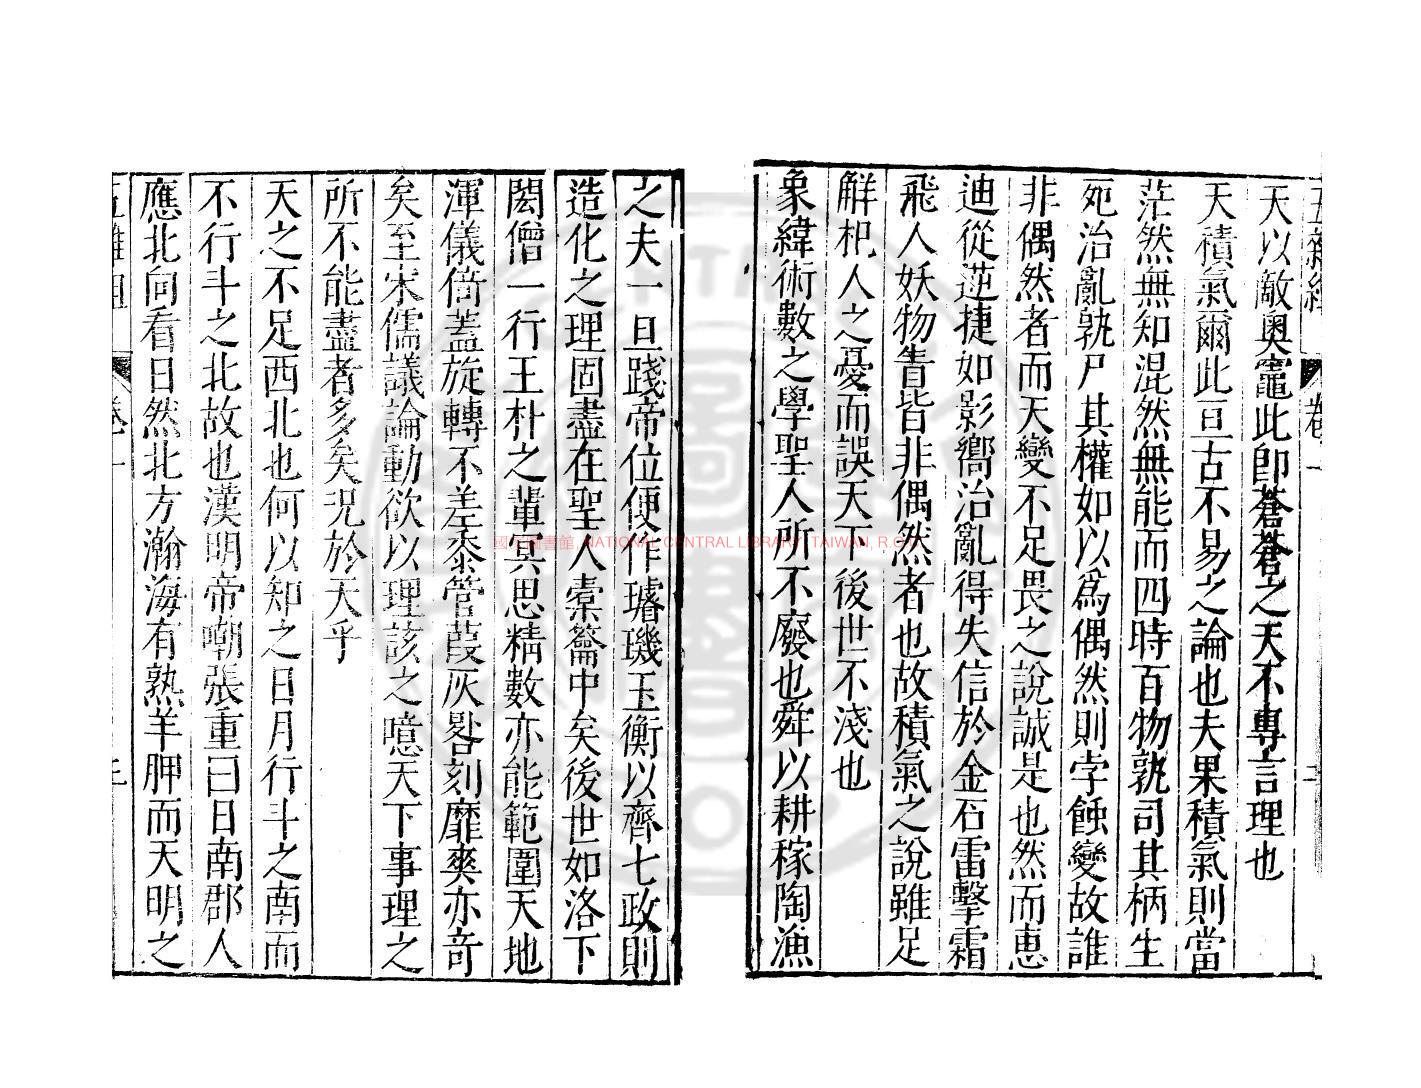 天以敵奧竈此卽蒼蒼之天不專言理也
天積氣爾此亘古不易之論也夫果積氣則當
茫然無知混然無能而四時百物孰司其柄生
死治亂孰尸其權如以爲偶然則孛蝕變故誰
非偶然者而天變不足畏之說誠是也然而惠
迪從逆捷如影嚮治亂得失信於金石雷擊霜
飛人妖物眚皆非偶然者也故積氣之說雖足
解杞人之憂而誤天下後世不淺也
象緯術數之學聖人所不廢也舜以耕稼陶漁
之夫一旦踐帝位便作璿璣玉衡以齊七政則
造化之理固盡在聖人橐籥中矣後世如洛下
閎僧一行王朴之輩冥思精數亦能範圍天地
渾儀倚蓋旋轉不差黍管葭灰晷刻靡爽亦奇
矣至宋儒議論動欲以理該之噫天下事理之
所不能盡者多矣况於天乎
天之不足西北也何以知之日月行斗之南而
不行斗之北故也漢明帝嘲張重曰日南郡人
應北向看日然北方瀚海有熟羊胛而天明之
國家圖書館, NATIONAL CENTRAL LIBRARY, TAIWAN, R.O.C.